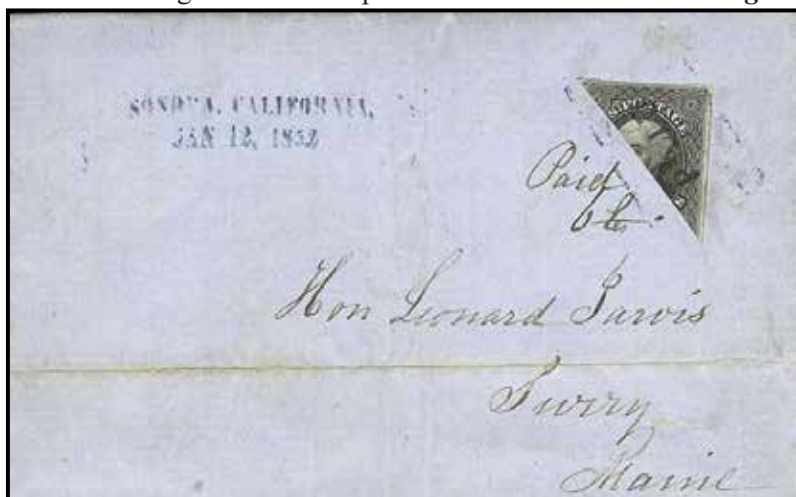 SONOMA, CALIFORNIA,
JAN 12, 1852
POSTAGE
Paid
6
Hon Leonard Jarvis
Surry
Maine